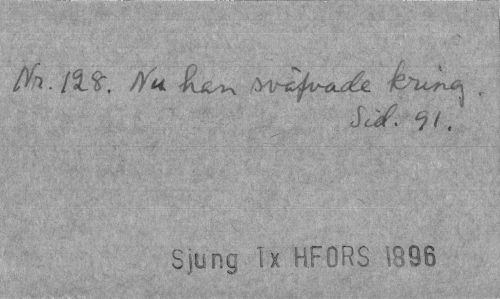 Nr. 128. Nu han sväfvade kring.
Sid. 91.
Sjung Tx HFORS 1896